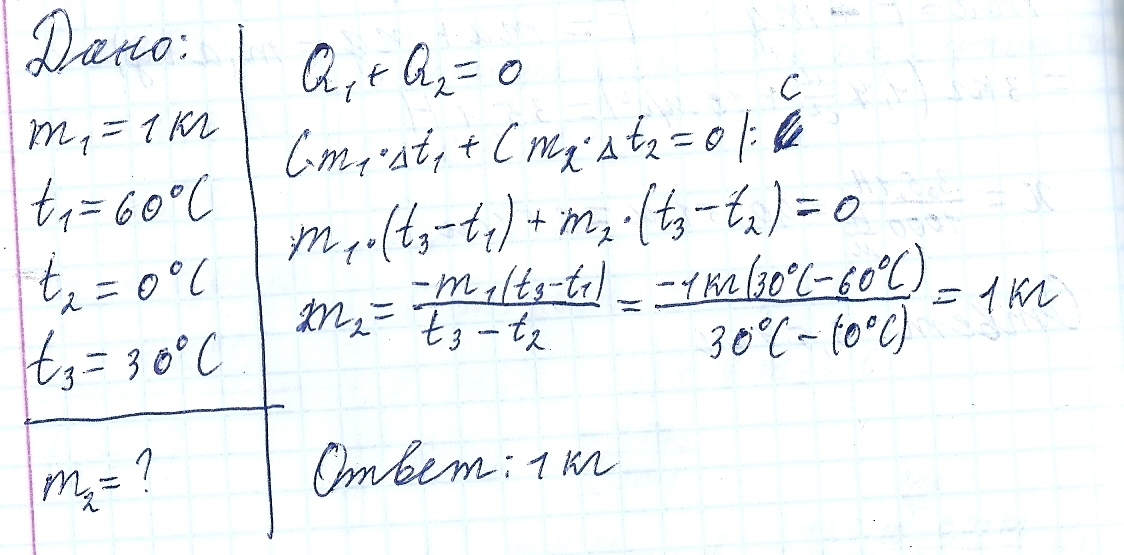 Дано:
m₁ = 1 кг
t₁ = 60°C
t₂ = 0°C
t₃ = 30°C
m₂ = ?
Q₁ + Q₂ = 0
Cm₁·Δt₁ + Cm₂·Δt₂ = 0 |: C
m₁·(t₃-t₁) + m₂·(t₃-t₂) = 0
m₂ = -m₁(t₃-t₁) / t₃-t₂ = -1кг(30°C-60°C) / 30°C-(0°C) = 1 кг
Ответ: 1 кг